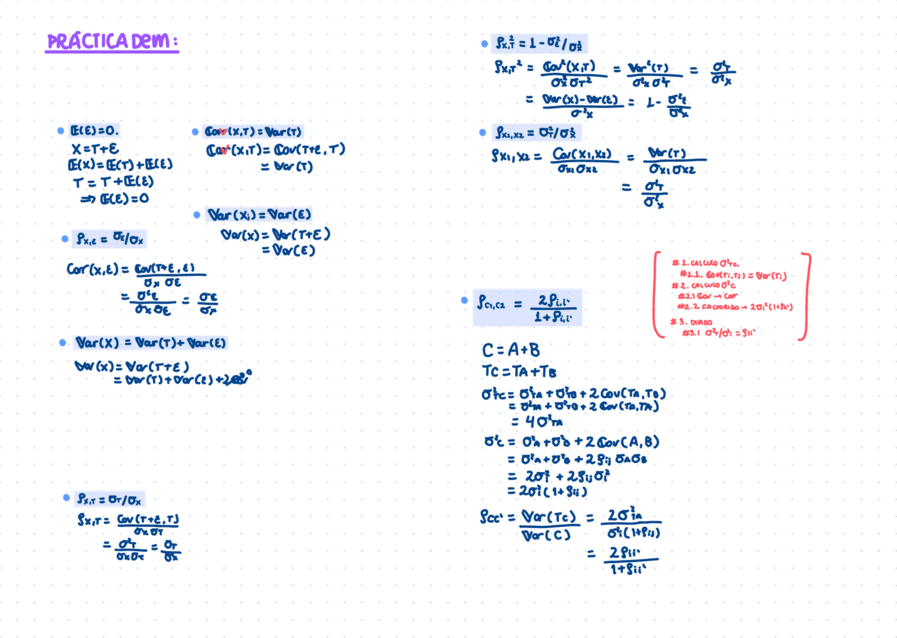 PRÁCTICA DEM:
• E(ε)=0.
X=T+ε
E(X)=E(T)+E(ε)
T = T+E(ε)
⇒ E(ε)=0
• Cov(X,T)=Var(T)
Cov(X,T)=Cov(T+ε,T)
= Var(T)
• Var(Xi)=Var(ε)
Var(X)=Var(T+ε)
= Var(ε)
• ρx,ε = σε/σx
Corr(x,ε) = Cov(T+ε,ε) / σx σε
= σ²ε / σxσε = σε / σx
• Var(X) = Var(T)+Var(ε)
Var(x)=Var(T+ε)
= Var(T)+Var(ε)+2
• ρx,T = σT/σx
ρx,T = Cov(T+ε,T) / σxσT
= σ²T / σxσT = σT / σx
• ρ²x,T = 1-σ²ε/σ²x
ρx,T² = Cov²(X,T) / σ²x σT² = Var²(T) / σ²x σ²T = σ²T / σ²x
= Var(x)-Var(ε) / σ²x = 1- σ²ε / σ²x
• ρx1,x2 = σ²T/σ²x
ρx1,x2 = Cov(X1,X2) / σx1 σx2 = Var(T) / σx1 σx2
= σ²T / σ²x
# 1. CALCULO σ²Tc.
#1.1. Cov(Ti,Tj) = Var(Ti)
# 2. CALCULO σ²C
#2.1 Cov → Cor
#2.2. FACTORIZO → 2σi²(1+ρii)
# 3. DIVIDO
#3.1 σ²T/σ²i = ρii'
• ρC1,C2 = 2ρi,i' / 1+ρi,i'
C = A+B
TC = TA+TB
σ²TC = σ²TA + σ²TB + 2Cov(TA,TB)
= σ²TA + σ²TB + 2Cov(TA,TA)
= 4σ²TA
σ²C = σ²A+σ²B + 2Cov(A,B)
= σ²A+σ²B + 2ρij σAσB
= 2σi² + 2ρijσi²
= 2σi²(1+ρii)
ρCC' = Var(TC) / Var(C) = 2σ²TA / σ²i(1+ρij)
= 2ρii' / 1+ρii'